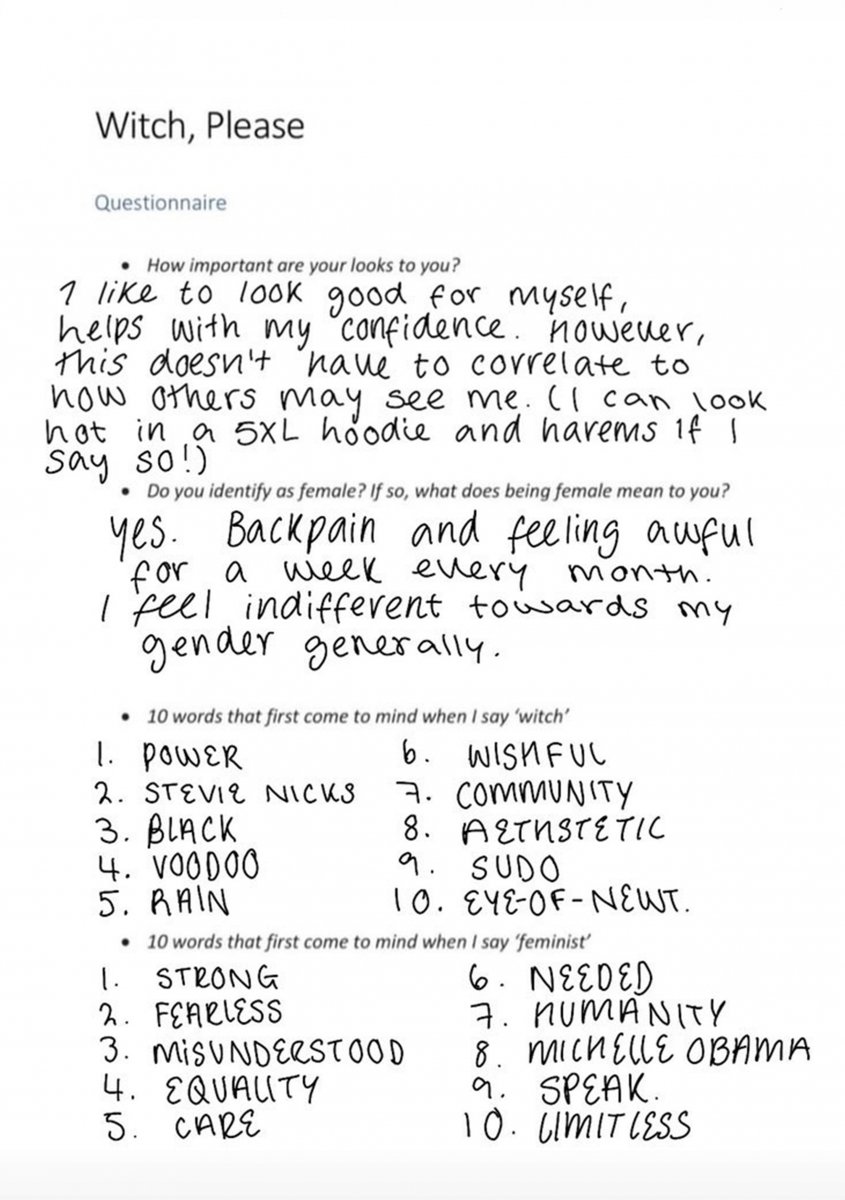 Witch, Please
Questionnaire
• How important are your looks to you?
I like to look good for myself,
helps with my confidence. However,
this doesn't have to correlate to
how others may see me. (I can look
hot in a 5XL hoodie and harems if I
say so!)
• Do you identify as female? If so, what does being female mean to you?
Yes. Backpain and feeling awful
for a week every month.
I feel indifferent towards my
gender generally.
• 10 words that first come to mind when I say ‘witch’
1. POWER 6. WISHFUL
2. STEVIE NICKS 7. COMMUNITY
3. BLACK 8. AETHSTETIC
4. VOODOO 9. SUDO
5. RAIN 10. EYE-OF-NEWT.
• 10 words that first come to mind when I say ‘feminist’
1. STRONG 6. NEEDED
2. FEARLESS 7. HUMANITY
3. MISUNDERSTOOD 8. MICHELLE OBAMA
4. EQUALITY 9. SPEAK.
5. CARE 10. LIMITLESS